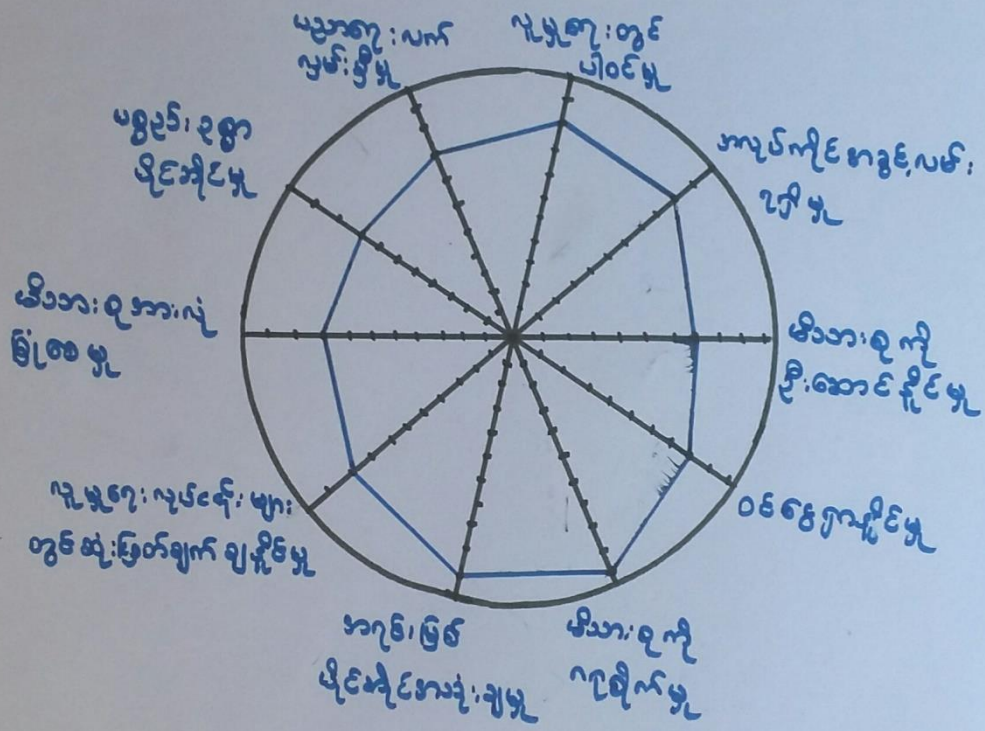 ပညာရေးလက်
လှမ်းမှီမှု
လူမှုရေးတွင်
ပါဝင်မှု
အလုပ်ကိုင်အခွင့်လမ်း
ရရှိမှု
မိသားစုကို
ဦးဆောင်နိုင်မှု
ဝင်ငွေရှာနိုင်မှု
မိသားစုကို
ဂရုစိုက်မှု
အရင်းမြစ်
ပိုင်ဆိုင်အသုံးချမှု
လူမှုရေးလုပ်ငန်းများ
တွင်ဆုံးဖြတ်ချက်ချနိုင်မှု
မိသားစုအားလုံ
ခြုံစေမှု
ပစ္စည်းဥစ္စာ
ပိုင်ဆိုင်မှု